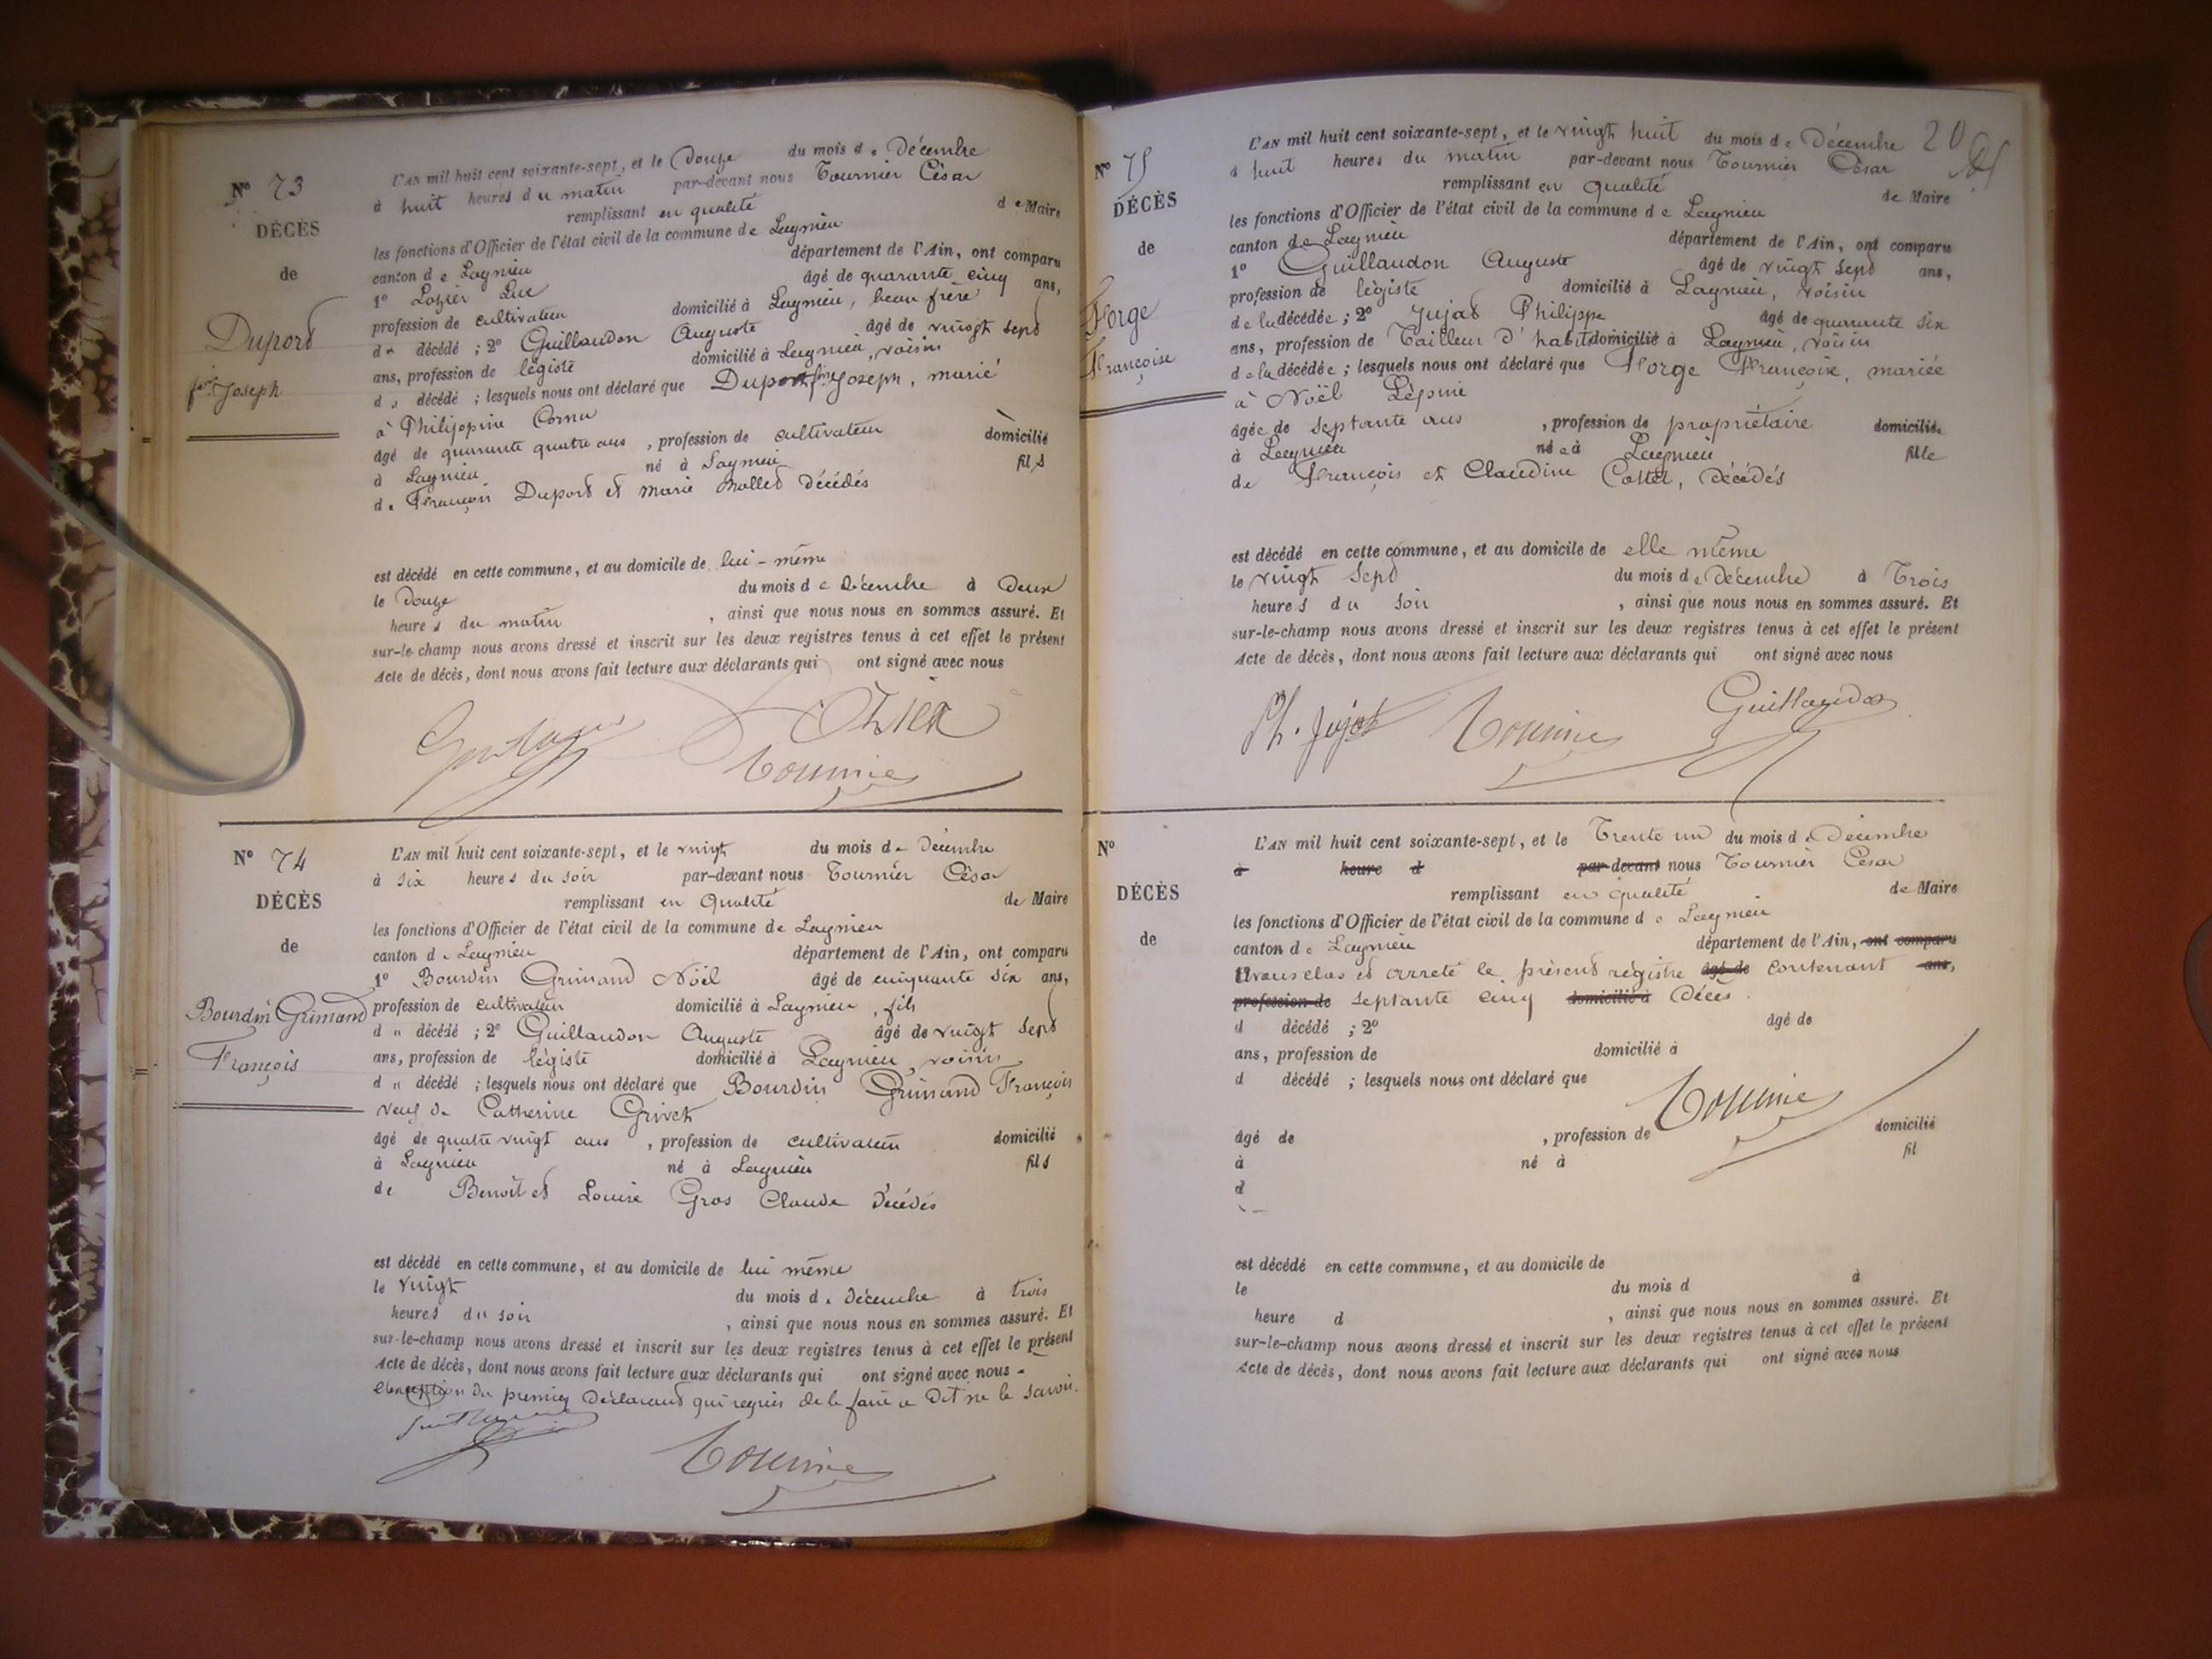 Nº 73
DÉCÈS
de
Duport
fçois Joseph
L'AN mil huit cent soixante-sept, et le Douze du mois de Décembre
à huit heures du matin par-devant nous Tournier César
remplissant en qualité de Maire
les fonctions d'Officier de l'état civil de la commune de Lagnieu
canton de Lagnieu département de l'Ain, ont comparu
1º Lozier Luc âgé de quarante cinq ans,
profession de cultivateur domicilié à Lagnieu, beau frère
du décédé ; 2º Guillaudon Auguste âgé de vingt sept
ans, profession de légiste domicilié à Lagnieu, voisin
du décédé ; lesquels nous ont déclaré que Duport fçois Joseph, marié
à Philippine Cornu
âgé de quarante quatre ans , profession de cultivateur domicilié
à Lagnieu né à Lagnieu fils
de François Duport et Marie Mollet Décédés
est décédé en cette commune, et au domicile de lui-même
le Douze du mois de Décembre à Deux
heures du matin , ainsi que nous nous en sommes assuré. Et
sur-le-champ nous avons dressé et inscrit sur les deux registres tenus à cet effet le présent
Acte de décès, dont nous avons fait lecture aux déclarants qui ont signé avec nous
Tournier
Nº 74
DÉCÈS
de
Bourdin Grimand
François
L'AN mil huit cent soixante-sept, et le vingt du mois de Décembre
à six heures du soir par-devant nous Tournier César
remplissant en Qualité de Maire
les fonctions d'Officier de l'état civil de la commune de Lagnieu
canton de Lagnieu département de l'Ain, ont comparu
1º Bourdin Grimand Nöel âgé de cinquante six ans,
profession de cultivateur domicilié à Lagnieu, fils
du décédé ; 2º Guillaudon Auguste âgé de vingt sept
ans, profession de légiste domicilié à Lagnieu, voisin
du décédé ; lesquels nous ont déclaré que Bourdin Grimand François
veuf de Catherine Grivet
âgé de quatre vingt ans , profession de cultivateur domicilié
à Lagnieu né à Lagnieu fils
de Benoît et Louise Gros Claude Décédés
est décédé en cette commune, et au domicile de lui même
le vingt du mois de Décembre à trois
heures du soir , ainsi que nous nous en sommes assuré. Et
sur-le-champ nous avons dressé et inscrit sur les deux registres tenus à cet effet le présent
Acte de décès, dont nous avons fait lecture aux déclarants qui ont signé avec nous -
du premier Déclarant qui requis de le faire a Dit ne le savoir.
Tournier
20
Nº 75
DÉCÈS
de
Florge
Françoise
L'AN mil huit cent soixante-sept, et le vingt huit du mois de Décembre
à huit heures du matin par-devant nous Tournier César
remplissant en qualité de Maire
les fonctions d'Officier de l'état civil de la commune de Lagnieu
canton de Lagnieu département de l'Ain, ont comparu
1º Guillaudon Auguste âgé de vingt sept ans,
profession de légiste domicilié à Lagnieu, voisin
de la décédée ; 2º Jujat Philippe âgé de quarante six
ans, profession de Tailleur d'habit domicilié à Lagnieu, voisin
de la décédée ; lesquels nous ont déclaré que Florge Françoise, mariée
à Nöel Lépine
âgée de septante ans , profession de propriétaire domiciliée
à Lagnieu née à Lagnieu fille
de François et Claudine Cottet, Décédés
est décédé en cette commune, et au domicile de elle même
le vingt sept du mois de Décembre à Trois
heures du soir , ainsi que nous nous en sommes assuré. Et
sur-le-champ nous avons dressé et inscrit sur les deux registres tenus à cet effet le présent
Acte de décès, dont nous avons fait lecture aux déclarants qui ont signé avec nous
Ph. Jujat Tournier Guillaudon
Nº
DÉCÈS
de
L'AN mil huit cent soixante-sept, et le Trente un du mois de Décembre
à heure d par-devant nous Tournier César
remplissant en qualité de Maire
les fonctions d'Officier de l'état civil de la commune de Lagnieu
canton de Lagnieu département de l'Ain, ont comparu
avons clos et arreté le présent régistre âgé de contenant ans,
profession de septante cinq domicilié à Décès.
d décédé ; 2º âgé de
ans, profession de domicilié à
d décédé ; lesquels nous ont déclaré que
Tournier
âgé de , profession de domicilié
à né à fil
d
est décédé en cette commune, et au domicile de
le du mois d à
heure d , ainsi que nous nous en sommes assuré. Et
sur-le-champ nous avons dressé et inscrit sur les deux registres tenus à cet effet le présent
Acte de décès, dont nous avons fait lecture aux déclarants qui ont signé avec nous